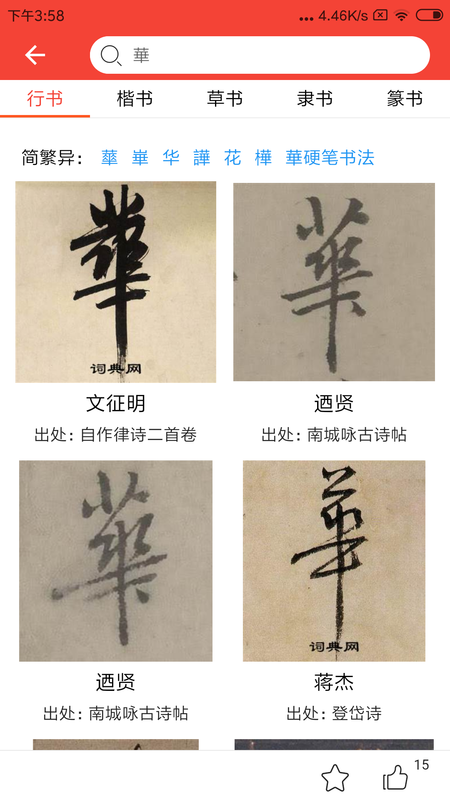 下午3:58 ... 4.46K/s
華
行书 楷书 草书 隶书 篆书
简繁异: 蕐 崋 华 譁 花 樺 華硬笔书法
華 華
词典网
文征明 迺贤
出处: 自作律诗二首卷 出处: 南城咏古诗帖
華 華
词典网
迺贤 蒋杰
出处: 南城咏古诗帖 出处: 登岱诗
15